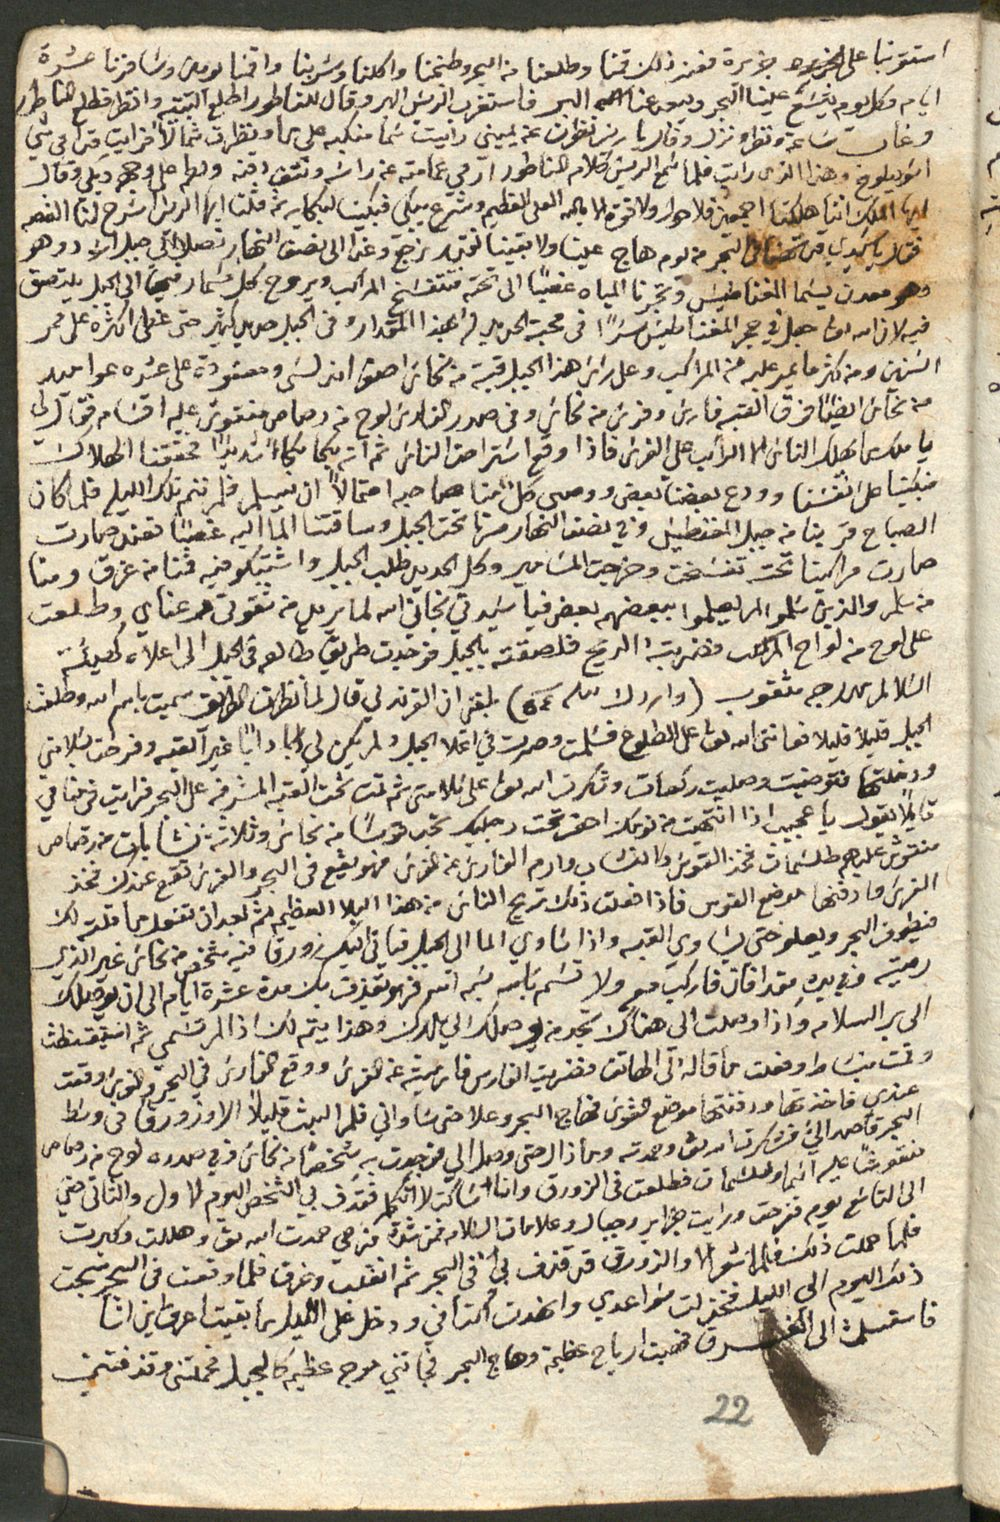 استقربنا على جزيرة فعند ذلك قمنا وطلعنا من البحر وطبخنا واكلنا وشربنا واقمنا يومين وسافرنا عشرة
ايام وكل يوم يتسع علينا البحر ويبعد عنا البر فاستغرب الريس البر وقال للناطور اطلع التبته وانظر فطلع الناطور
وغاب ساعة ونظر ونزل وقال يا ريس نظرت عن يميني رايت سما منكبه على ما ونظرت شمالا فرايت قدامي شي
اسود يلوح وهذا الذي رايت فلما سمع الريس كلام الناطور ارمى عمامته عن راسه ونتف دقنه ولطم على وجهه وقال
ايها الملك اننا هلكنا اجمعين فلا حول ولا قوة الا بالله العلي العظيم وشرع يبكي فبكينا لبكايه ثم قلنا ايها الريس اشرح لنا القصه
فقال يا سيدي قد تهنا في البحر من يوم هاج علينا ولا بقينا نقدر نرجع وغدا الى نصف النهار نصل الى جبل اسود وهو
وهو معدن يسما المغناطيس وتجرنا المياه غصبًا الى تحته فتتفسخ المراكب ويروح كل مسمار فيها الى الجبل يلتصق
فيه لان الله تعا جعل في حجر المغناطيس سرًا في محبة الحديد لهذا المقدار وفي الجبل حديد كثير حتى غطى اكثره على ممر
السنين ومن كثر ما يمر عليه من المراكب وعلى راس هذا الجبل قبة من نحاس اصفر اندلسي ومعقودة على عشرة عواميد
من نحاس ايضًا فوق القبه فارس وفرس من نحاس وفي صدر الفارس لوح من رصاص منقوش عليه اقسام فقال لي
يا ملك ما يهلك الناس الا الراكب على الفرس فاذا وقع استراحت الناس ثم انه بكا بكاءً شديدًا فحققنا الهلاك
فبكينا على انفسنا وودع بعضنا بعض ووصى كل منا صاحبه احتمالا ان يسلم فلم ننم تلك الليله فلما كان
الصباح قربنا من جبل المغنطيس وفي نصف النهار صرنا تحت الجبل وساقتنا الما اليه غصبًا فعند صارت
صارت مراكبنا تحته تفسخت وخرجت المسامير وكل الحديد طلب الجبل واشتبكو فيه فمنا من غرق ومنا
من سلم والذين سلموا لم يعلموا ببعضهم بعض فيا سيدتي نجاني الله لما يريد من شقوتي وعناي وطلعت
على لوح من لواح المركب فضربته الريح فلصقته بالجبل فوجدت طريق طالعه في الجبل الى اعلاه كهيئة
السلالم مدرجه مثقوب بلغني ان القرندلي قال لما نظرت الطريق سميت باسم الله وطلعت
الجبل قليلا قليلا فعانني الله تعا على الطلوع فسلمت وصرت في اعلا الجبل ولم يكن لي دابًا غير القبه وفرحت بسلامتي
ودخلتها فتوضيت وصليت ركعات وشكرت الله تعا على سلامتي ثم نمت تحت القبه المشرفه على البحر فرايت في منامي
قايلا يقول يا عجيب اذا انتبهت من نومك احفر تحت رجليك تجد قوسًا من نحاس وثلاثة نشابات من رصاص
منقوش عليهم طلسمات فخذ القوس والنشاب وارم الفارس عن الفرس فهو يقع في البحر والفرس تقع عندك فخذ
الفرس وادفنها موضع القوس فاذا فعلت ذلك تريح الناس من هذا البلا العظيم ثم بعد ان تفعل ما قلت لك
فيطوف البحر ويعلو حتى يساوي القبه واذا تساوي الما الى الجبل فياتي اليك زورق فيه شخص من نحاس غير الذي
رميته وفي يديه مقدافان فاركب معه ولا تسم باسمه الله فهو يقدف بك مدة عشرة ايام الى ان يوصلك
الى بر السلامه واذا وصلت الى هناك تجد من يوصلك الى بلدك وهذا يتم لك اذا لم تسمي ثم استيقظت
وقمت بنشاط وفعلت ما قاله الي الهاتف فضربت الفارس فارميته عن الفرس ووقع الفارس في البحر والفرس وقعت
عندي فاخذتها ودفنتها موضع القوس فهاج البحر وعلا حتى ساواني فلم البث قليلا الا وزورق في وسط
البحر قاصد الي فشكرت الله تعا وحمدته وما زال حتى وصل الي فوجدت به شخص من نحاس وفي صدره لوح من رصاص
منقوشًا عليه اسما وطلسمات فطلعت في الزورق وانا ساكت لا اتكلم فقذف بي الشخص اليوم الاول والثاني حتى
الى التاسع يوم ففرحت ورايت جزاير وجبال وعلامات السلامه فمن شدة فرحي حمدت الله تعا وهللت وكبرت
فلما عملت ذلك فلم اشعر الا والزورق قد قذف بي في البحر ثم انقلب وغرق فلما وقعت في البحر سبحت
ذلك اليوم الى الليل فخدلت سواعدي وانهدت اكتافي ودخل على الليل ما بقيت اعرف اين انا
فاستسلمت الى الغرق فهبت ارياح عظيمة وهاج البحر فجاتني موجه عظيمه كالجبل فحملتني وقذفتني
22